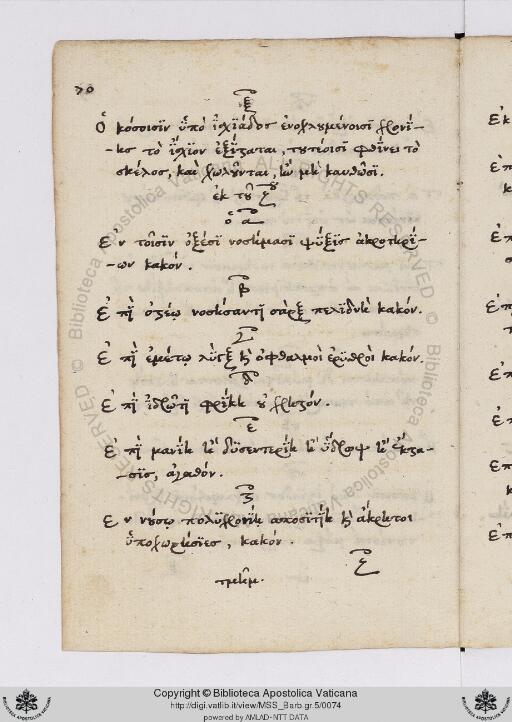 70
ξ
Ὁκόσοισιν ὑπὸ ἰσχιάδος ἐνοχλουμένοισι χρονί-
-ης τὸ ἰσχίον ἐξίσταται, τουτέοισι φθίνει τὸ
σκέλος, καὶ χωλοῦνται, ἢν μὴ καυθῶσι.
ἐκ τοῦ ζου
ὁ α
Ἐν τοῖσιν ὀξέσι νοσήμασι ψύξις ἀκροτηρί-
-ων κακόν.
β
Ἐπὶ ὀστέῳ νοσήσαντι σὰρξ πελιδνὴ κακόν.
Ἐπὶ ἐμέτῳ λὺγξ κὴ ὀφθαλμοὶ ἐρυθροὶ κακόν.
δ
Ἐπὶ ἱδρῶτι φρίκη οὐ χρηστόν.
ε
Ἐπὶ μανίη ἢ δυσεντερίη ἢ ὕδρωψ ἢ ἔκστα-
-σις, ἀγαθόν.
Ἐν νούσῳ πολυχρονίη ἀποσιτίη κὴ ἄκρητοι
ὑποχωρήσιες, κακόν.
ζ
Copyright © Biblioteca Apostolica Vaticana
http://digi.vatlib.it/view/MSS_Barb.gr.5/0074
powered by AMLAD-NTT DATA